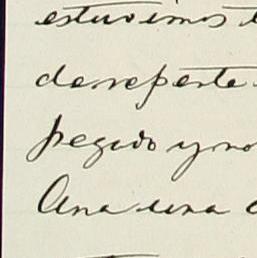 estuvimos
de repente
pegado y no
Ana una